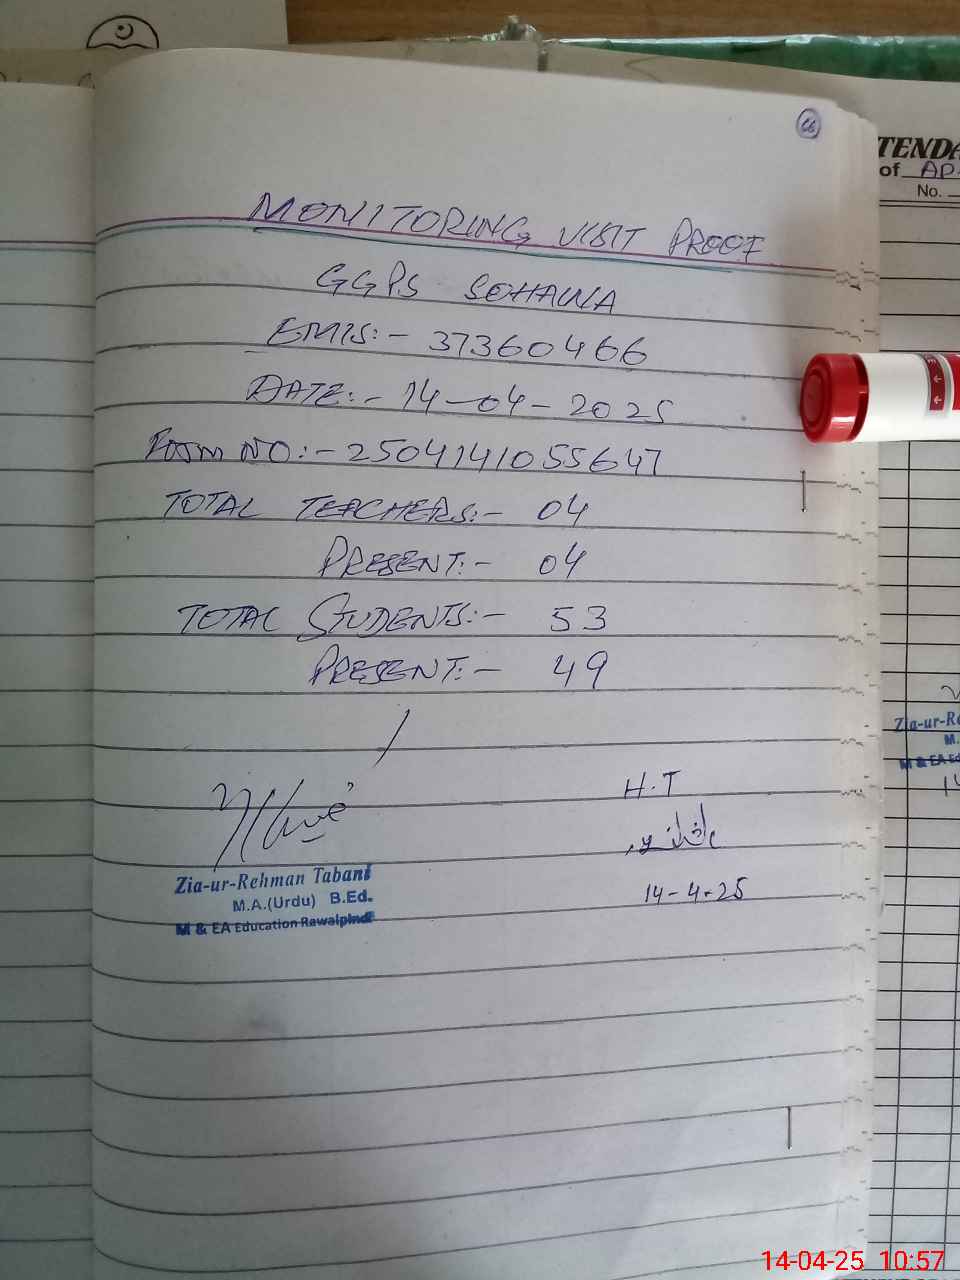 66
MONITORING VISIT PROOF
GGPS SOHAWA
EMIS:- 37360466
DATE:- 14-04-2025
Form NO:- 2504141055647
TOTAL TEACHERS:- 04
PRESENT:- 04
TOTAL STUDENTS:- 53
PRESENT:- 49
H.T
14-4-25
Zia-ur-Rehman Tabani
M.A.(Urdu) B.Ed.
M & EA Education Rawalpindi
TENDA
of AP
No.
Zia-ur-Re
M.
M & EA Ed
14
14-04-25 10:57